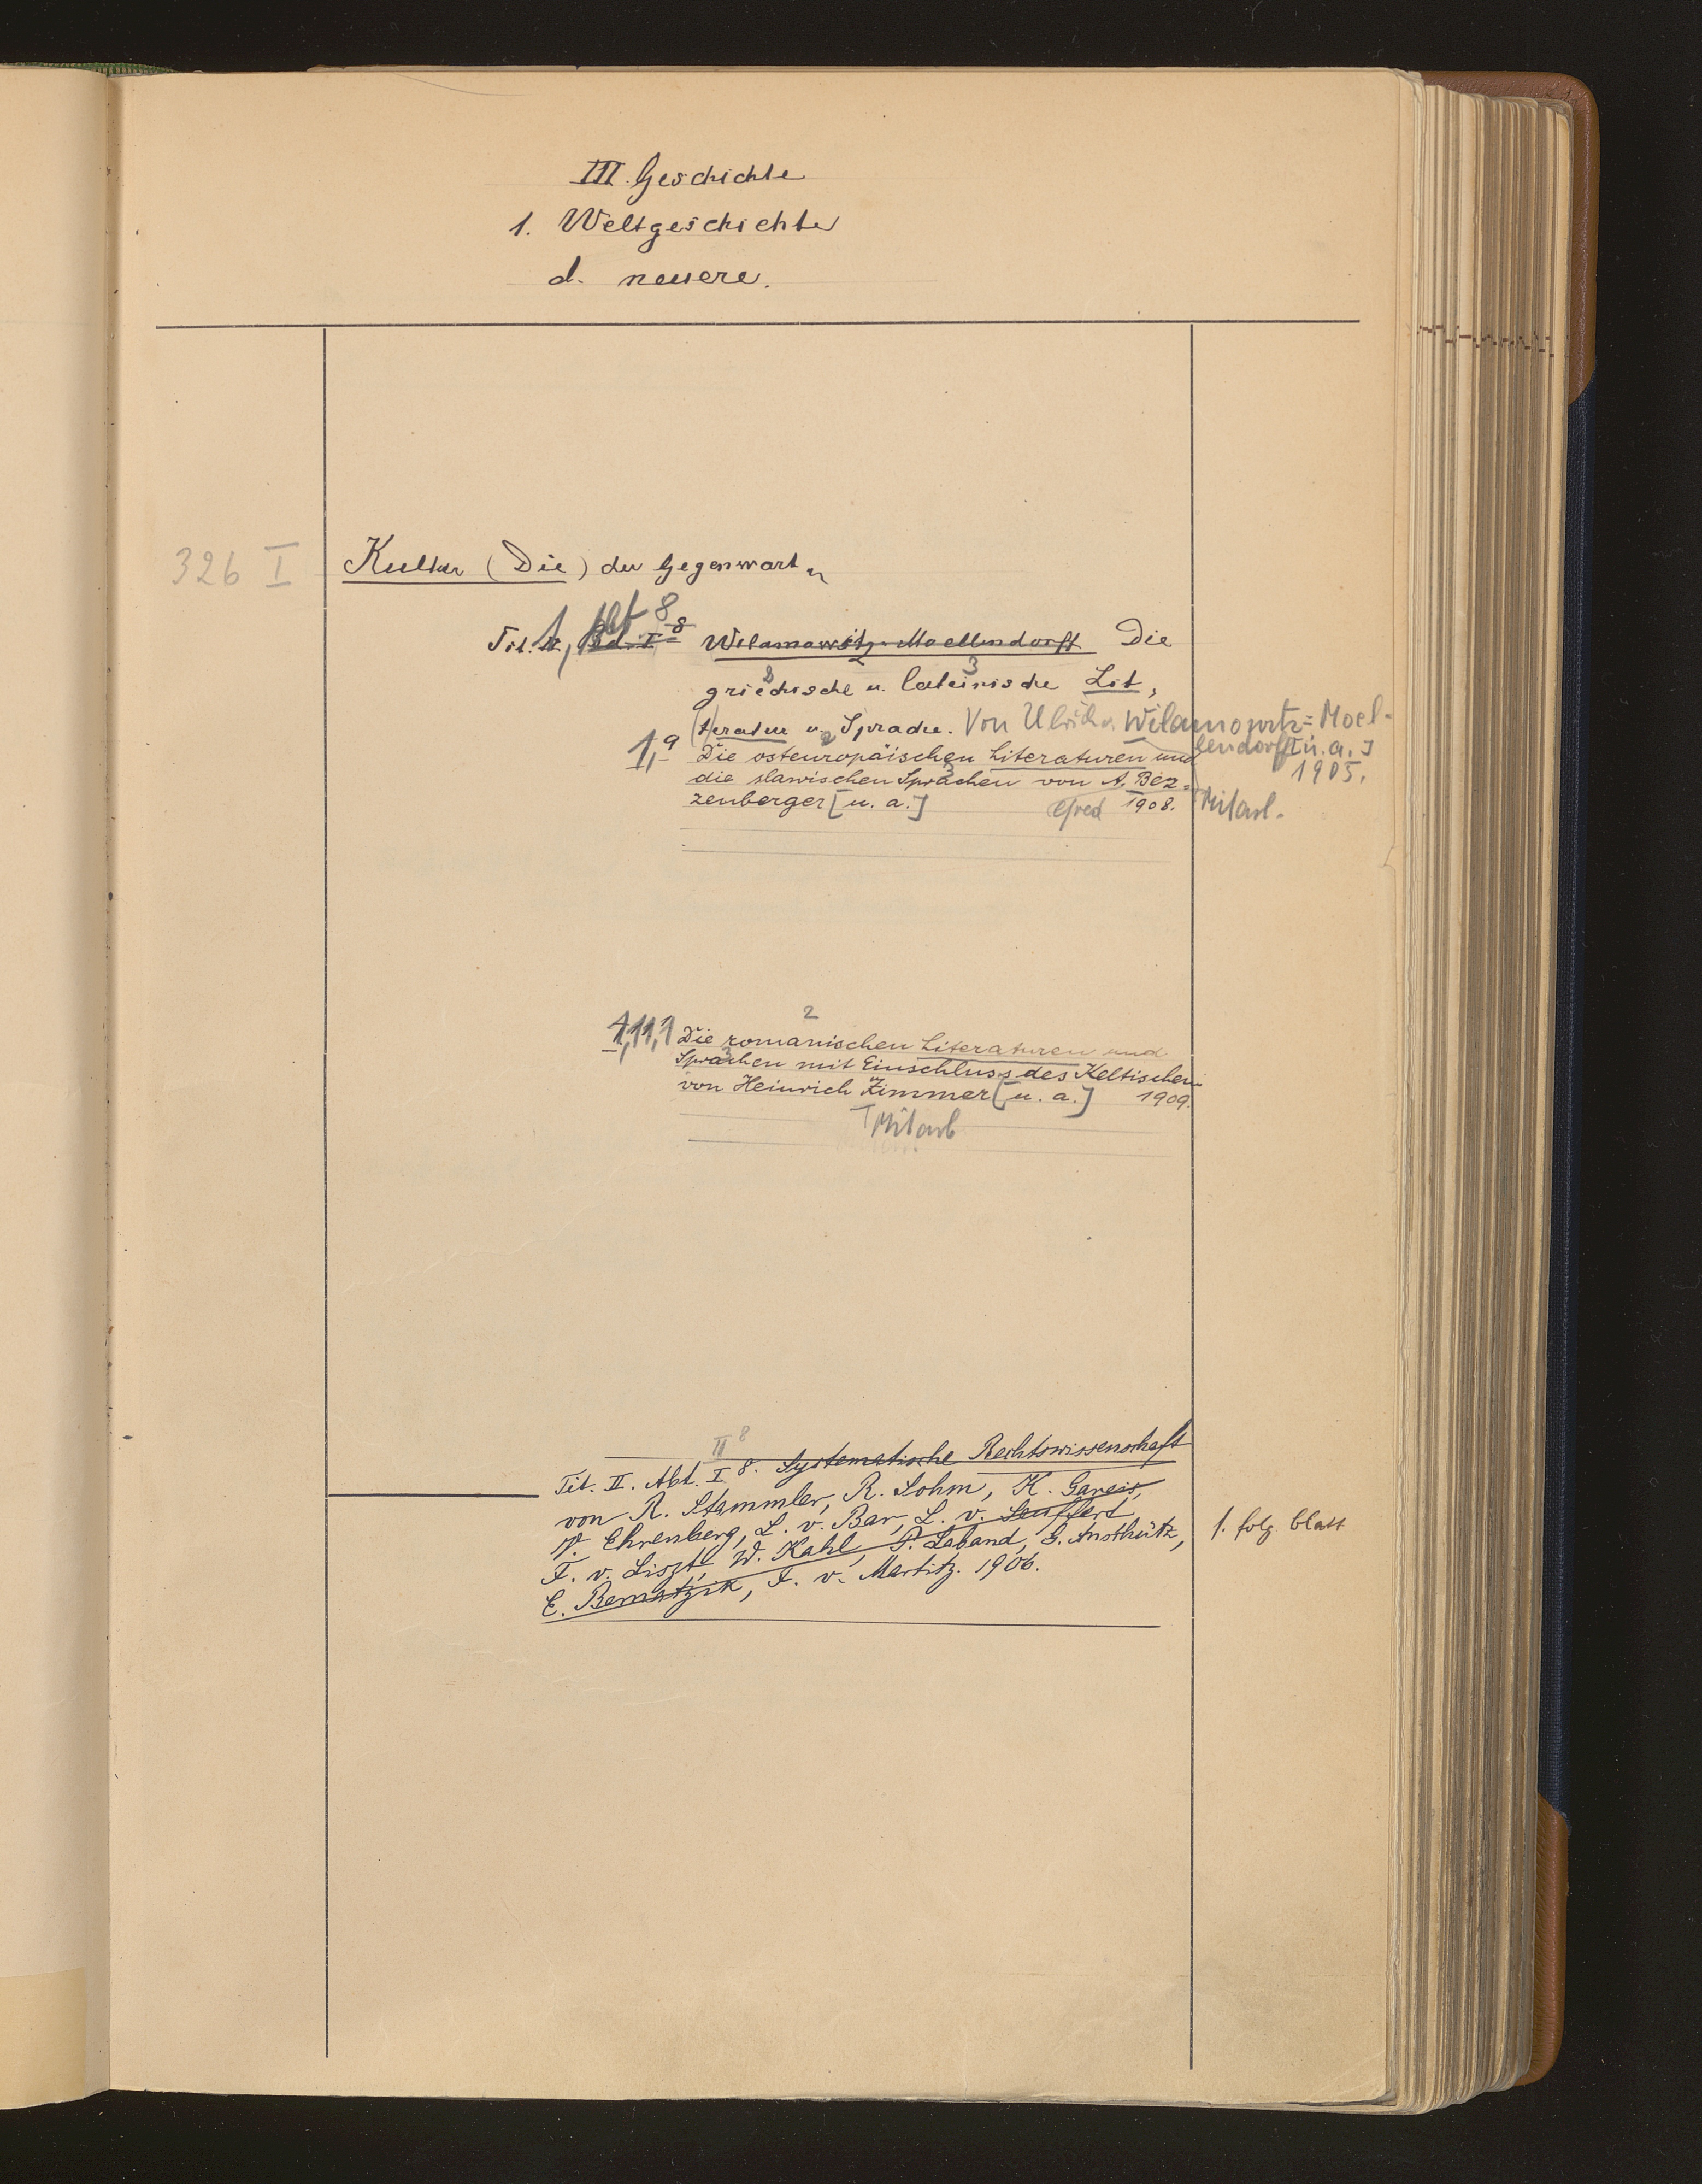 III. Geschichte
1. Weltgeschichte
d. neuere.
326 I
Kultur (Die) der Gegenwart.
Teil 1, Abt 8 Bd. I 8 Wilamowitz-Moellendorff Die
griechische u. lateinische Lit,
teratur u. Sprache. Von Ulrich v. Wilamowitz=Moel-
lendorff [u. a.]
1905.
1,9 Die osteuropäischen Literaturen und
die slawischen Sprachen von A. Bez=
zenberger [u. a.] 1908.
Mitarb.
2
1,11,1 Die romanischen Literaturen und
Sprachen mit Einschluss des Keltischen
von Heinrich Zimmer [u. a.] 1909.
Mitarb
II 8
Teil. II. Abt. I 8. Systematische Rechtswissenschaft
von R. Stammler, R. Sohm, K. Gareis,
V. Ehrenberg, L. v. Bar, L. v. Seuffert,
F. v. Liszt, W. Kahl, P. Laband, G. Anschütz,
E. Bernatzik, F. v. Martitz. 1906.
s. folg. Blatt